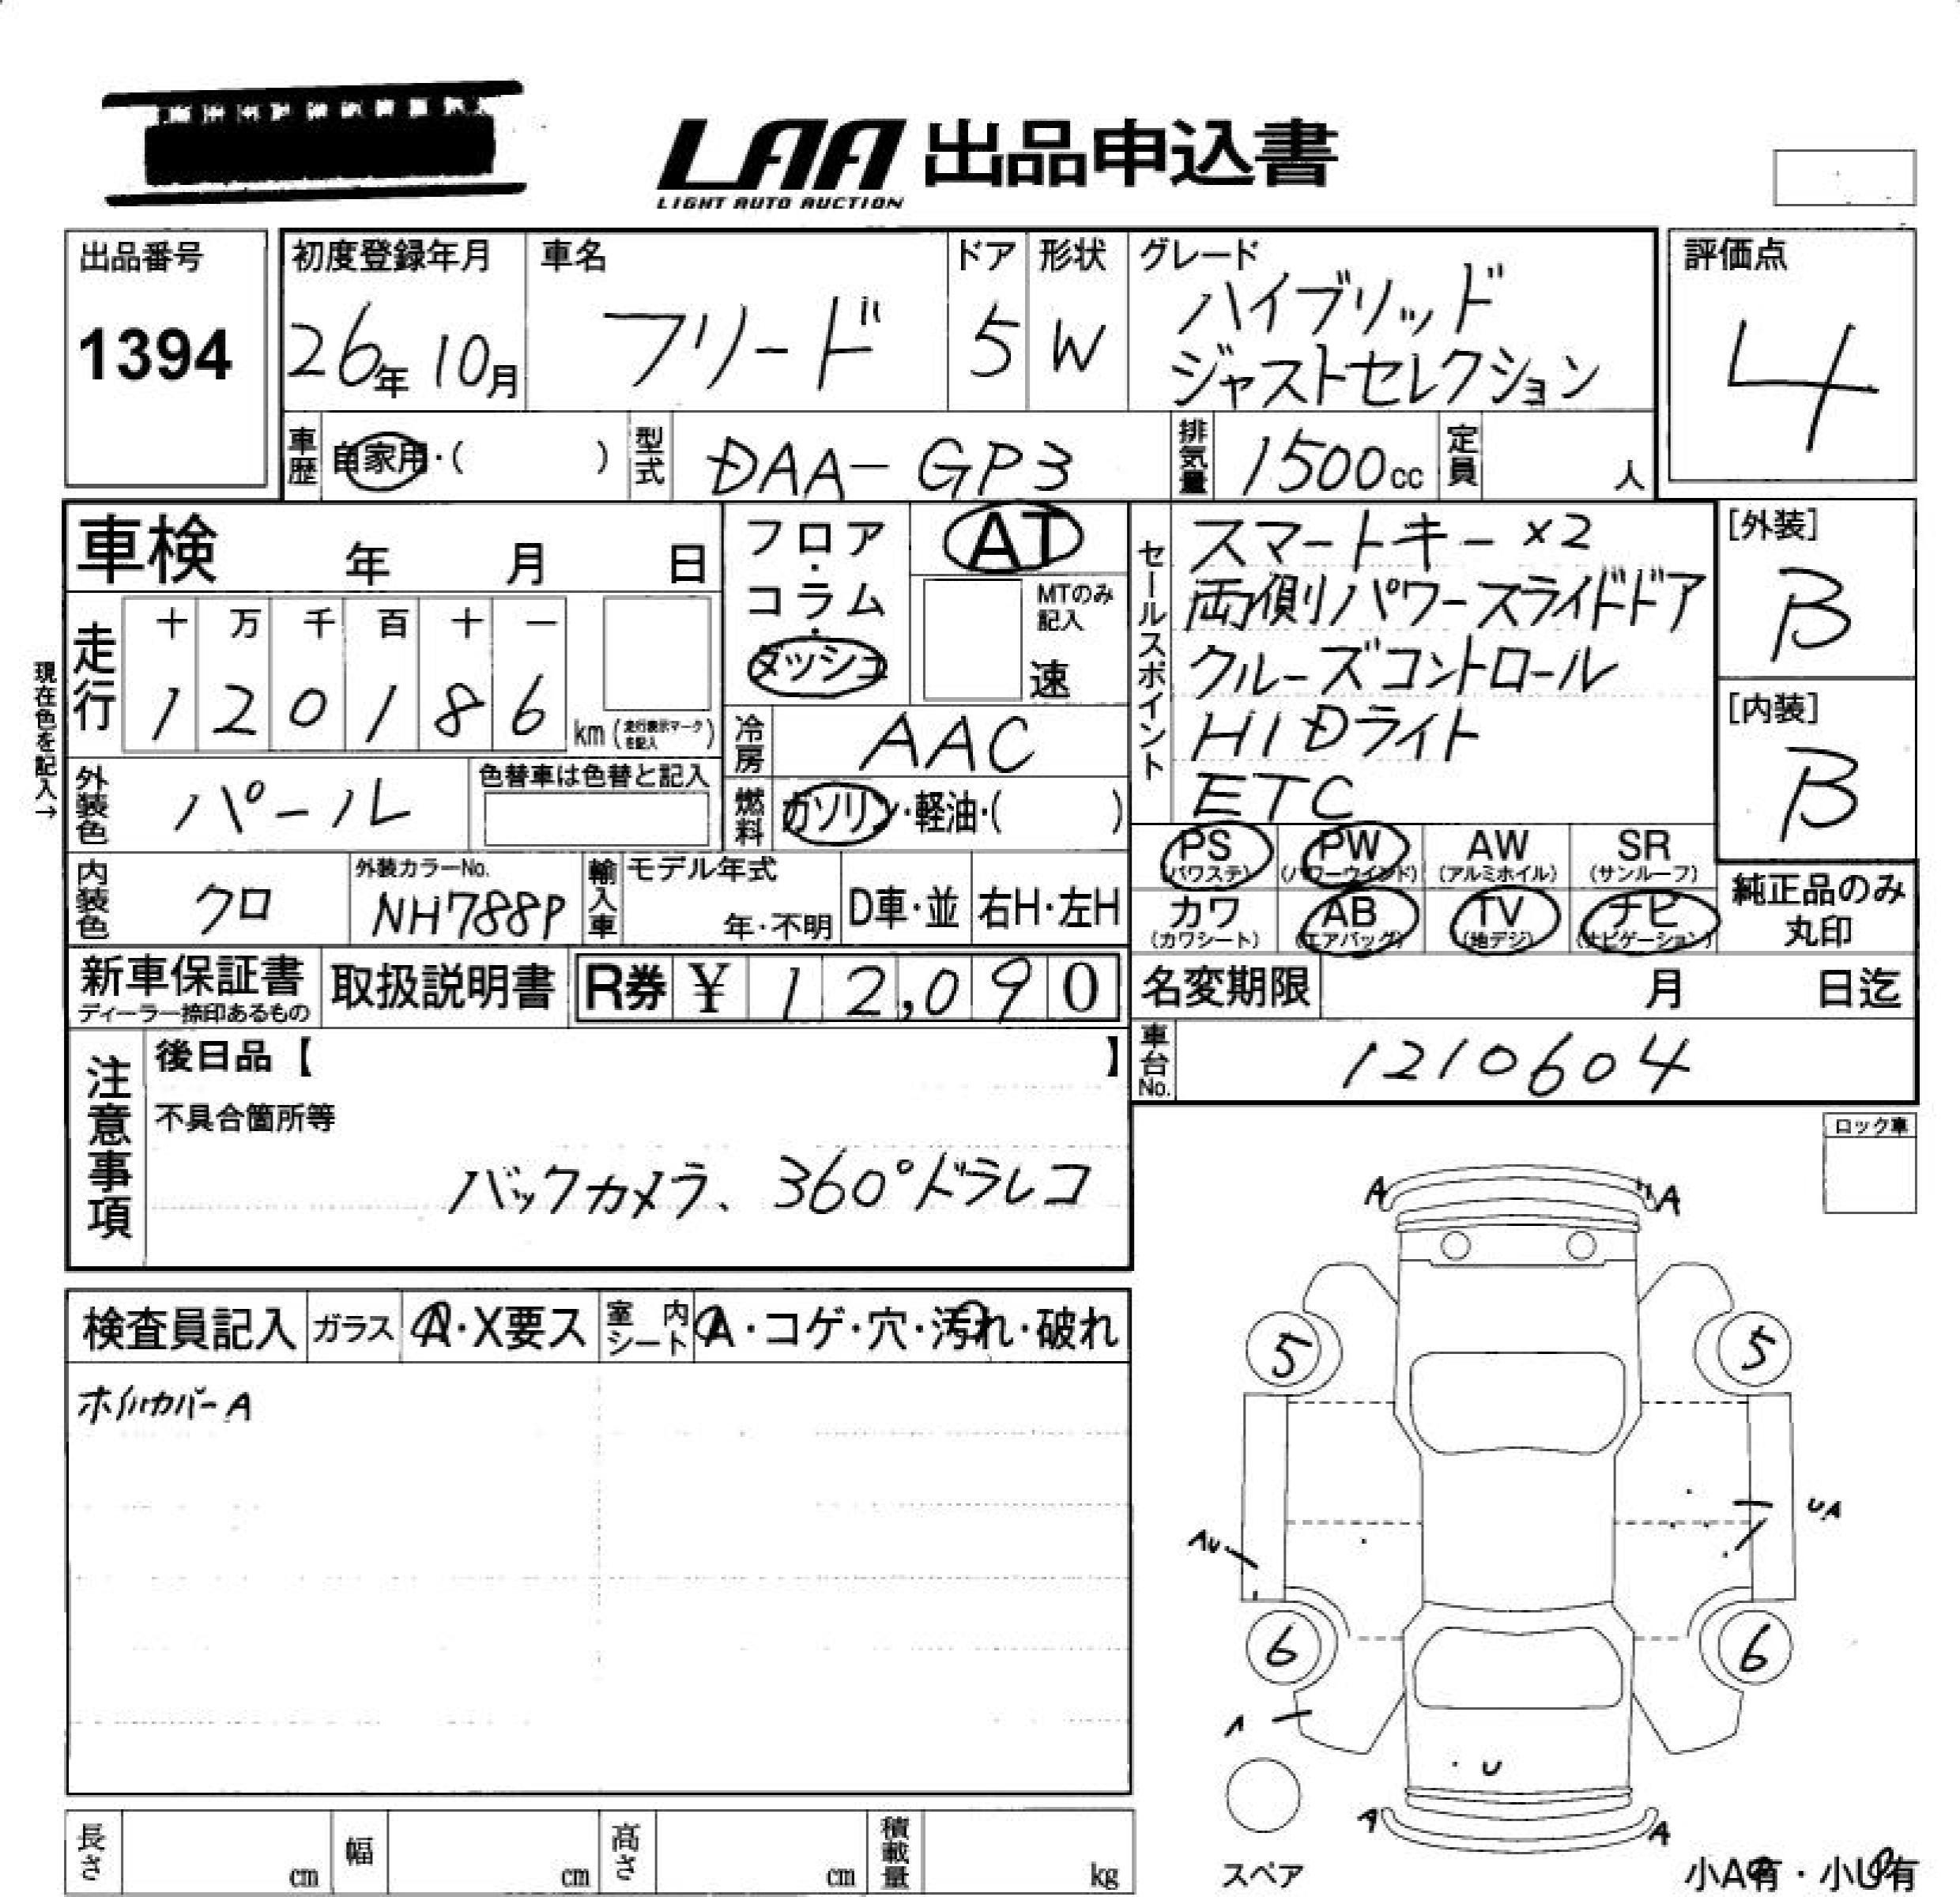 LAA 出品申込書
LIGHT AUTO AUCTION
出品番号
1394
初度登録年月
26年 10月
車名
フリード
ドア
5
形状
W
グレード
ハイブリッド
ジャストセレクション
評価点
4
車歴
自家用・( )
型式
DAA-GP3
排気量
1500cc
定員
人
車検 年 月 日
フロア・
コラム・
ダッシュ
AT
MTのみ
記入
速
セールスポイント
スマートキー ×2
両側パワースライドドア
クルーズコントロール
HIDライト
ETC
[外装]
B
[内装]
B
現在色を記入→
走行
十 万 千 百 十 一
1 2 0 1 8 6 km (走行表示マークを記入)
冷房
AAC
外装色
パール
色替車は色替と記入
燃料
ガソリン・軽油・( )
PS
(パワステ)
PW
(パワーウインド)
AW
(アルミホイル)
SR
(サンルーフ)
カワ
(カワシート)
AB
(エアバッグ)
TV
(地デジ)
ナビ
(ナビゲーション)
純正品のみ
丸印
内装色
クロ
外装カラーNo.
NH788P
輸入車
モデル年式
年・不明
D車・並
右H・左H
新車保証書
ディーラー捺印あるもの
取扱説明書
R券 ¥ 12,090
名変期限 月 日迄
車台No.
1210604
注意事項
後日品【 】
不具合箇所等
バックカメラ、360°ドラレコ
ロック車
検査員記入
ガラス
A・X要ス
室内シート
A・コゲ・穴・汚れ・破れ
ホイルカバーA
A
A
5
5
UA
AU
6
6
A
U
A
A
スペア
小A有・小U有
長さ cm
幅 cm
高さ cm
積載量 kg